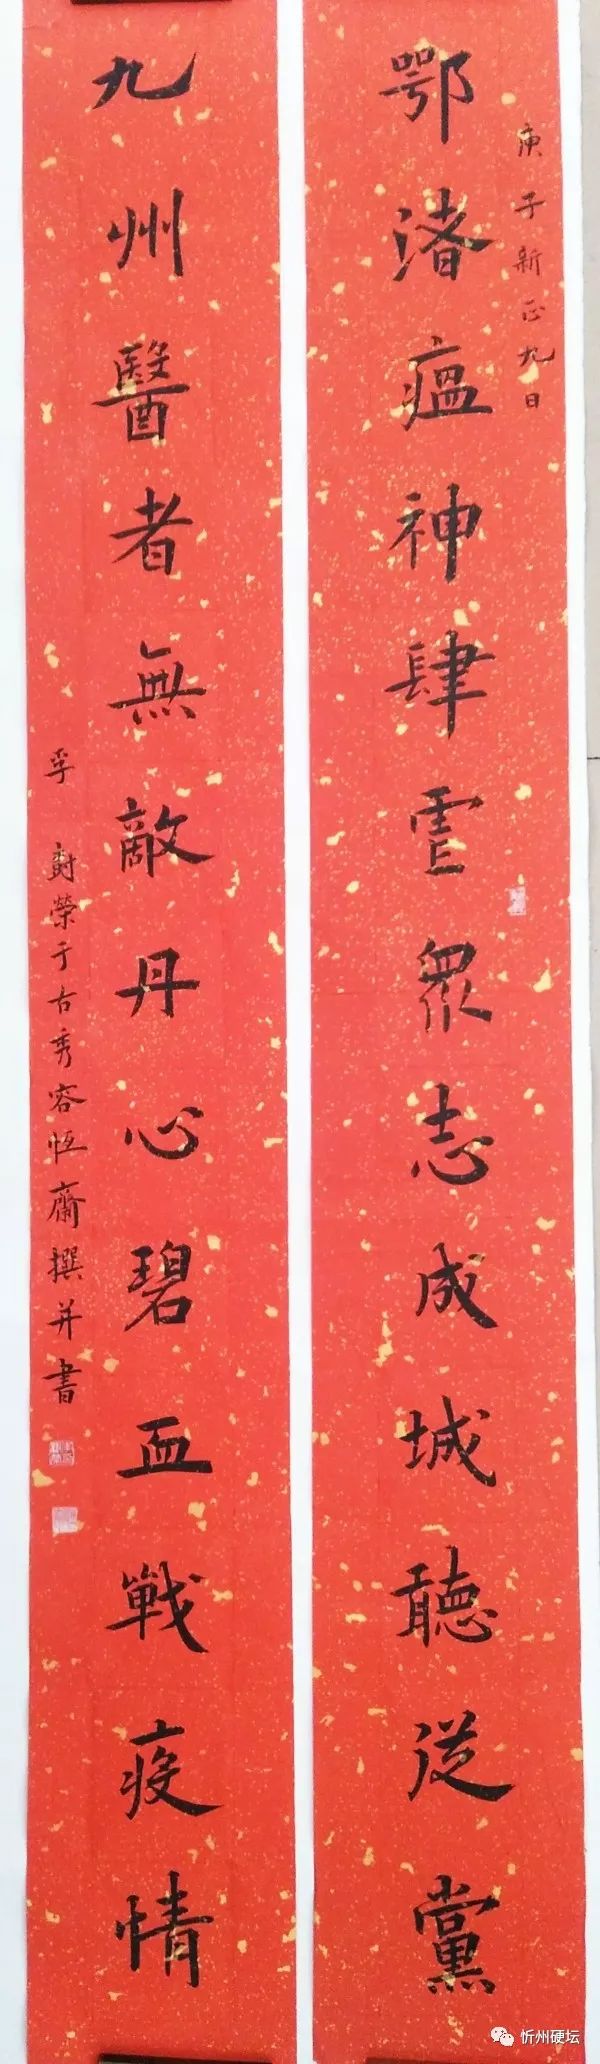 庚子新正九日
鄂渚瘟神肆虐眾志成城聽從黨
九州醫者無敵丹心碧血戰疫情
榮于古秀容恆齋撰并書
忻州硬坛